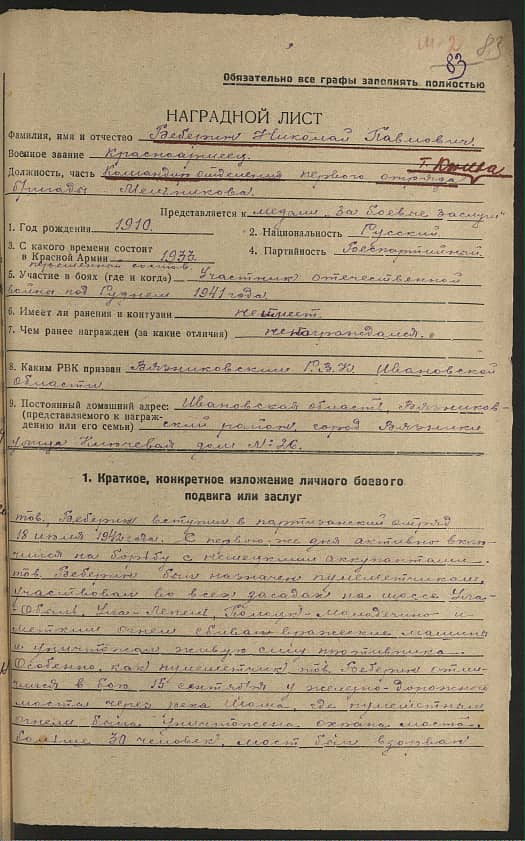 83
83
Обязательно все графы заполнять полностью
НАГРАДНОЙ ЛИСТ
Фамилия, имя и отчество Беберин Николай Павлович
Военное звание Красноармеец.
Должность, часть Командир отделения первого отряда
бригады Мельникова.
Представляется к медали "За боевые заслуги"
1. Год рождения 1910. 2. Национальность Русский
3. С какого времени состоит 4. Партийность Беспартийный
в Красной Армии 1933
переменный состав.
5. Участие в боях (где и когда) Участник отечественной
война под 1941 года
6. Имеет ли ранения и контузии не имеет
7. Чем ранее награжден (за какие отличия) не награждался.
8. Каким РВК призван Вязниковским Р.В.К. Ивановской
области
9. Постоянный домашний адрес: Ивановская область, Вязников-
(представляемого к награж-
дению или его семьи) ский район, город Вязники
улица дом № 26.
1. Краткое, конкретное изложение личного боевого
подвига или заслуг
тов. Беберин вступил в партизанский отряд
18 июля 1942 года. С первого же дня активно вклю-
чился на борьбу с немецкими аккупантами.
тов. Беберин был назначен пулеметчиком,
участвовал во всех засадах на шоссе Ула-
Ула-Лепель, Полоцк-Молодечно и
метким огнем сбивал вражеские машины
и уничтожал живую силу противника.
Особенно, как пулеметчик тов. Беберин отли-
чился в бою 15 сентября у железно-дорожного
моста через река где пулеметным
огнем была уничтожена охрана моста.
больше 30 человек, мост был взорван